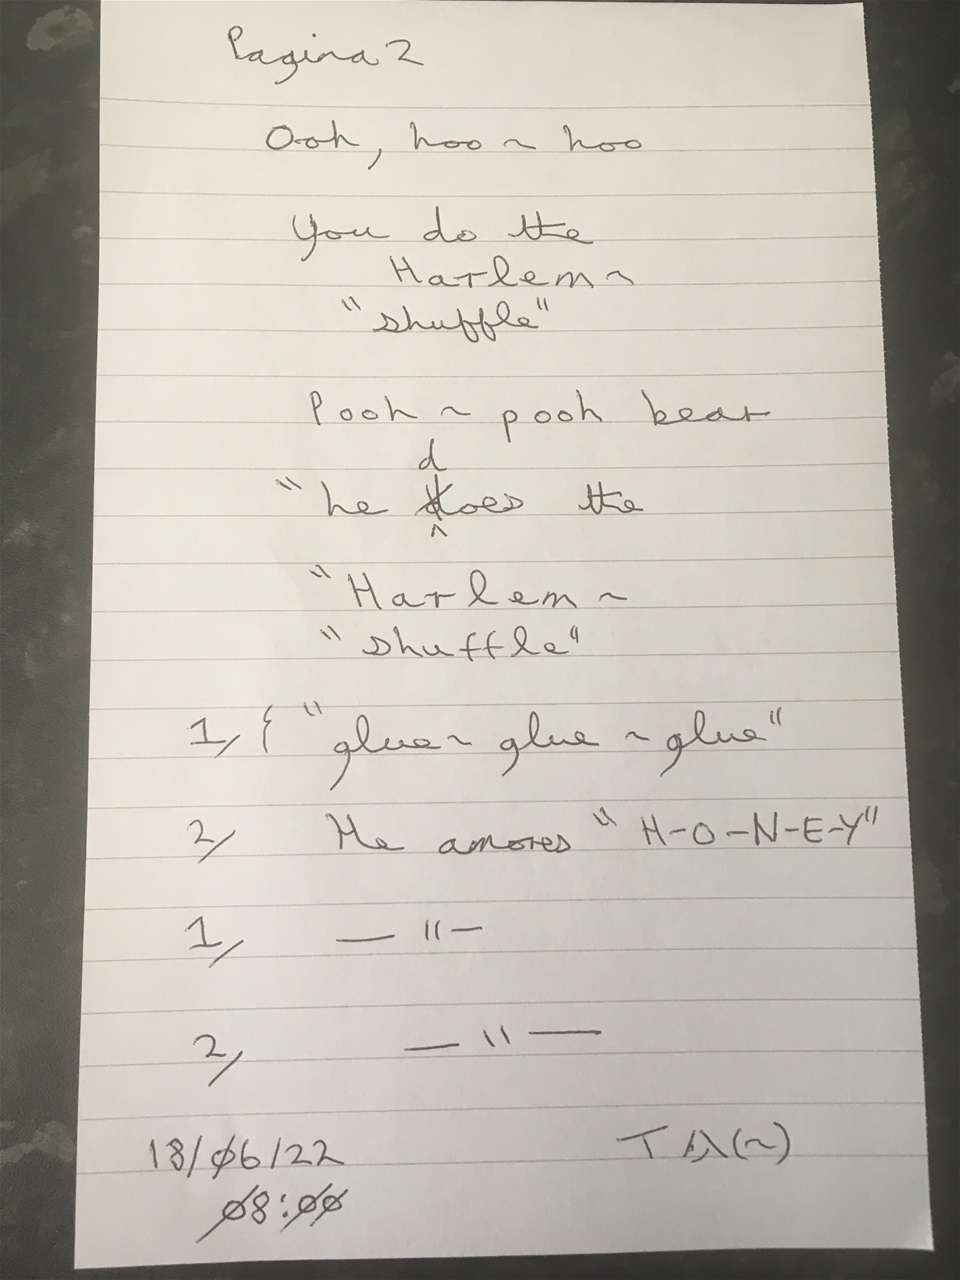 Pagina 2
Ooh, hoo ~ hoo
You do the
Harlem ~
"shuffle"
Pooh ~ pooh bear
d
"he does the
"Harlem ~
"shuffle"
1, { "glue ~ glue ~ glue"
2, He amores "H-O-N-E-Y"
1, — " —
2, — " —
18/06/22
08:00